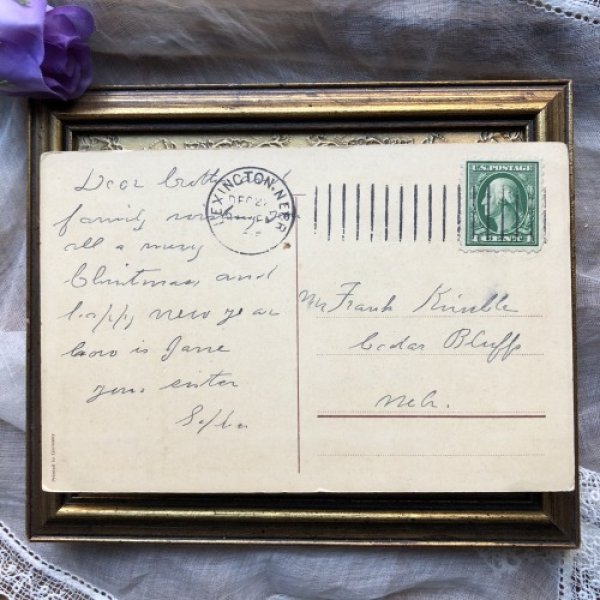 Dear brother and
family wishing you
all a mery
Christmas and
happy new year
how is Jane
your sister
LEXINGTON, NEBR
DEC 2
U.S. POSTAGE
1 CENT 1
Mr Frank Kimble
Cedar Bluffs
Neb.
Printed in Germany